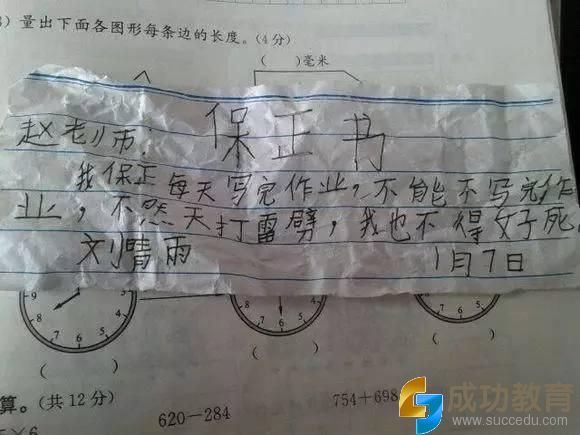 ）量出下面各图形每条边的长度。(4分)
（　　）毫米
保正书
赵老师：
我保正每天写完作业，不能不写完作
业，不然天打雷劈，我也不得好死。
刘晴雨
1月7日
9 8 7 6 5 4 3
8 7 6 5 4
9 8 7 6 5 4 3
（　　）
（　　）
（　　）
算。(共12分)
620－284
754＋698
×6
成功教育
www.succedu.com